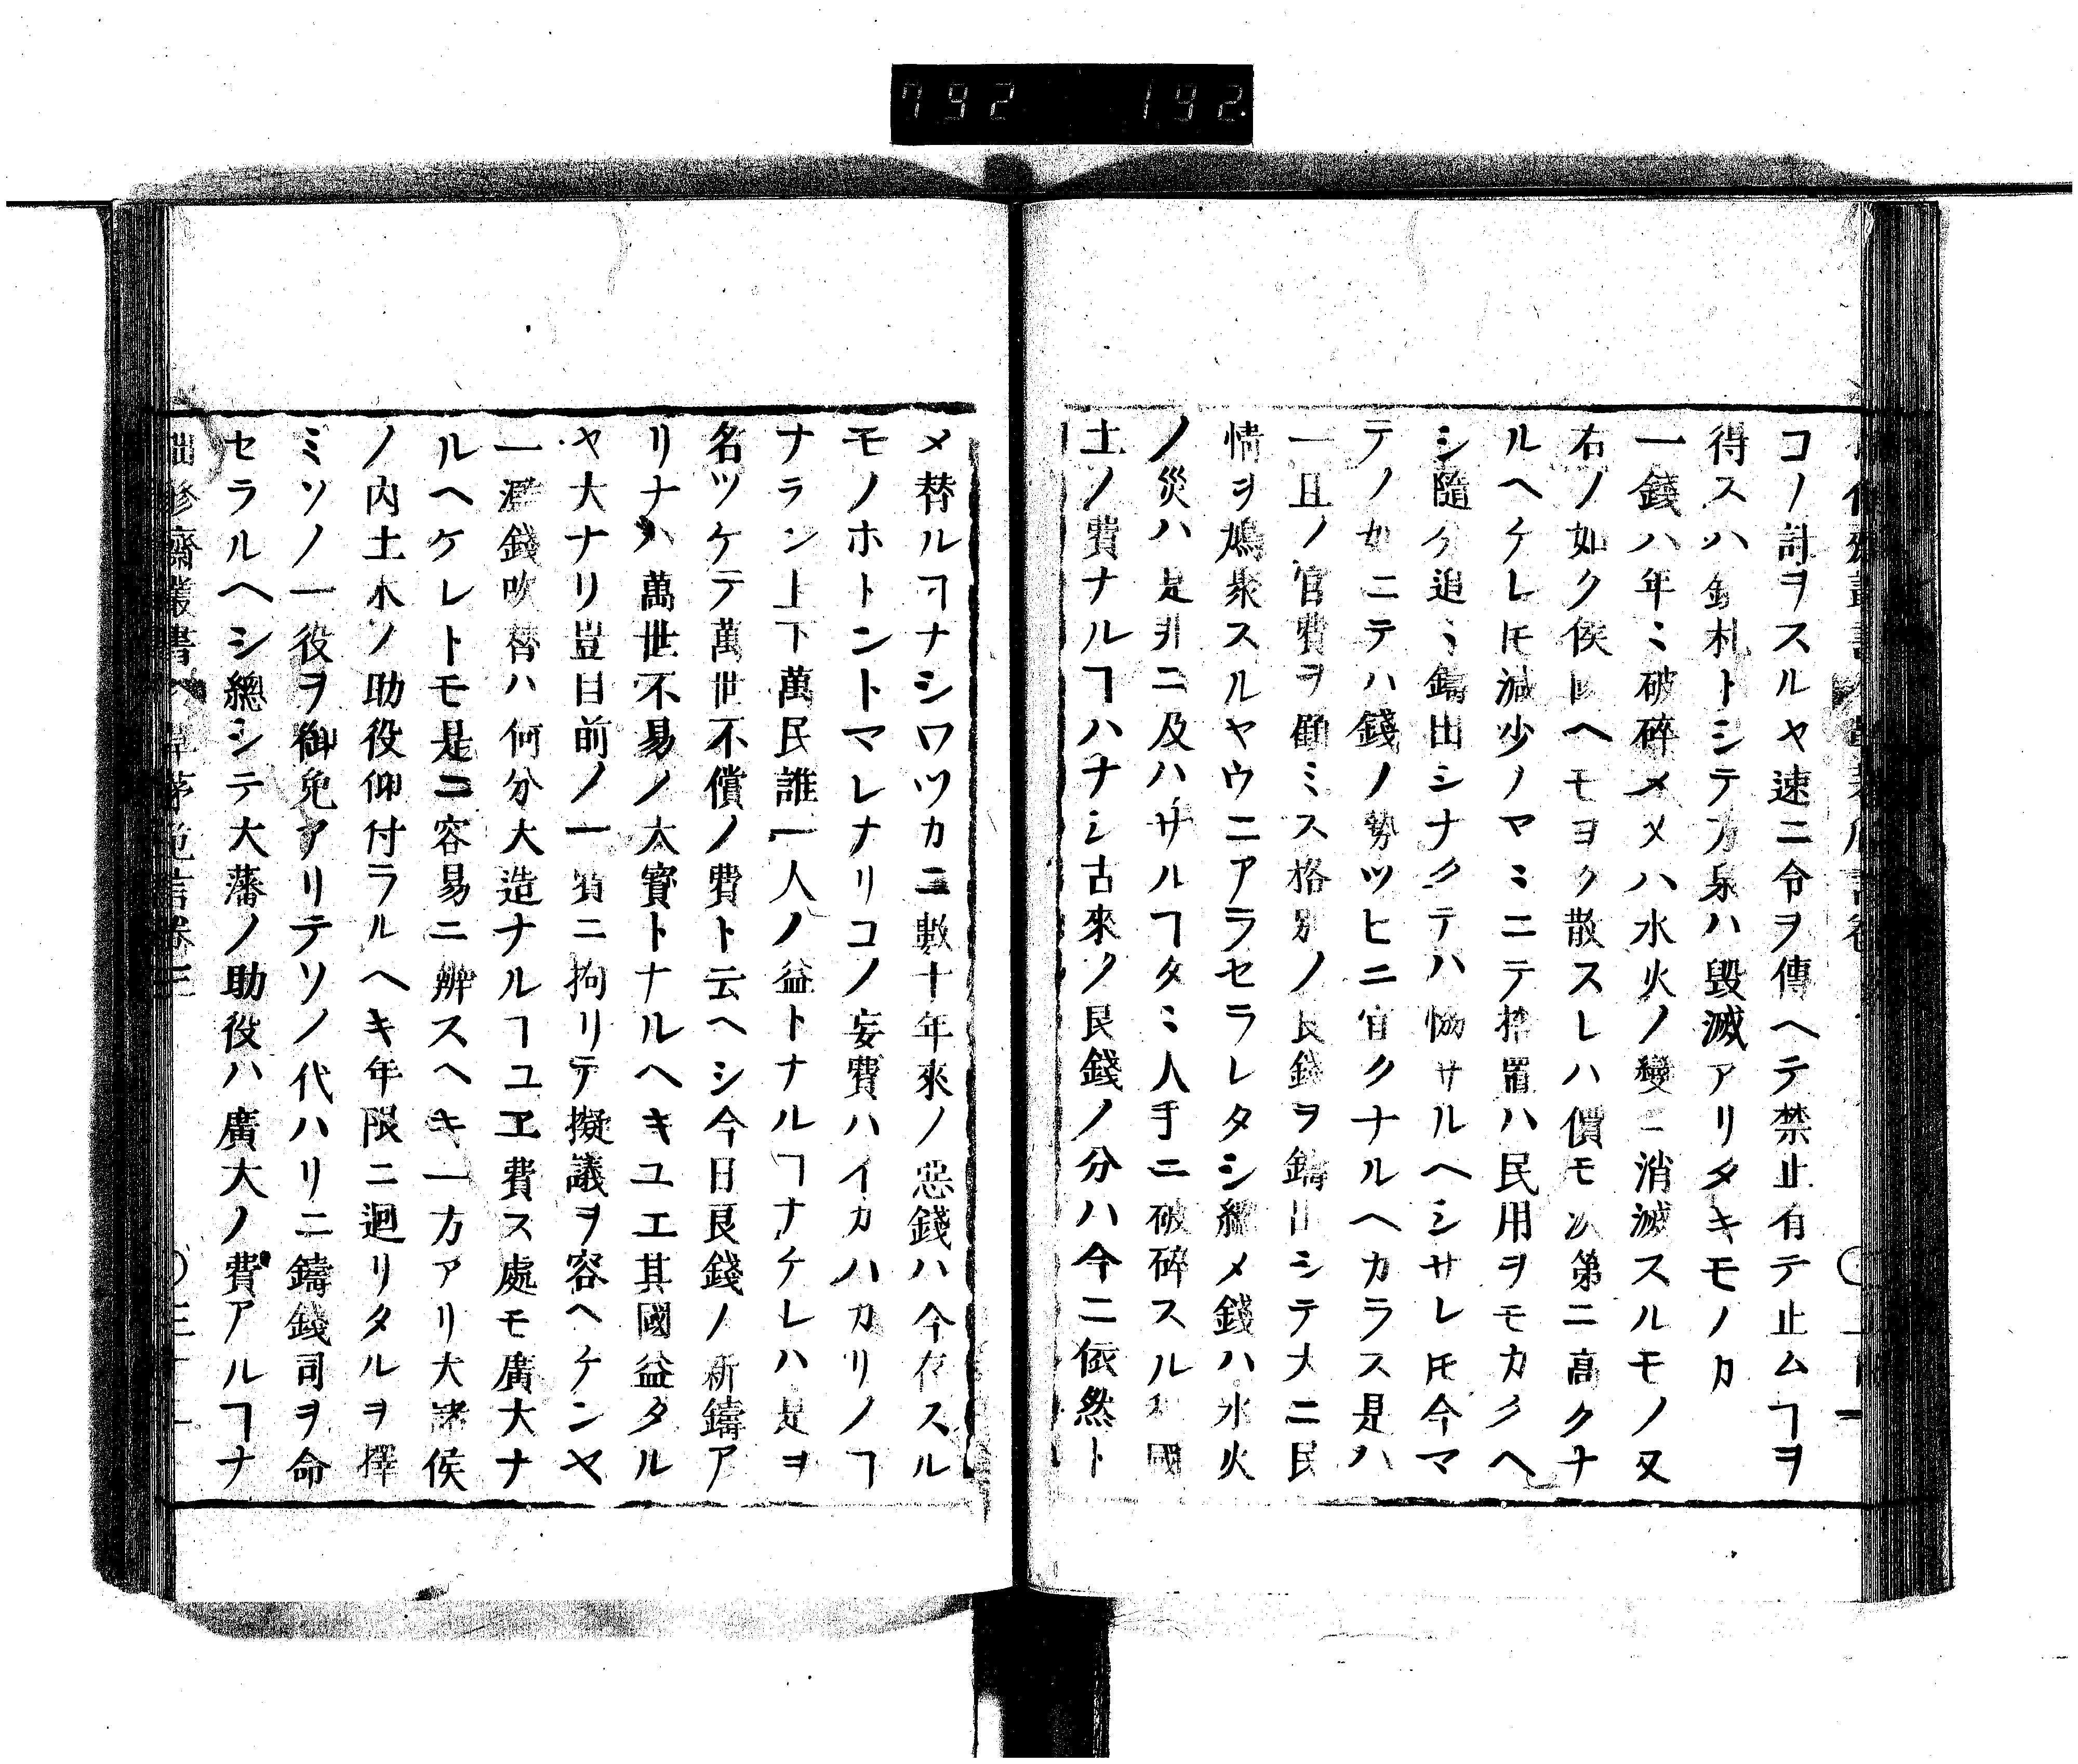 792 192
コノ計ヲスルヤ速ニ令ヲ傳ヘテ禁止有テ止ムヿヲ
得スハ鈔札トシテ刀泉ハ毀滅アリタキモノカ
一錢ハ年ミ破碎メメハ水火ノ變ニ消滅スルモノ又
右ノ如ク侯國ヘモヨク散スレハ價モ次第ニ高クナ
ルヘケレ𪜈減少ノマミニテ措置ハ民用ヲモカクヘ
シ隨分追ミ鑄出シナクテハ恊サルヘシサレ𪜈今マ
テノ如ニテハ錢ノ勢ツヒニ官クナルヘカラス是ハ
一旦ノ官費ヲ顧ミス格別ノ良錢ヲ鑄出シテ大ニ民
情ヲ鳩聚スルヤウニアラセラレタシ纔メ錢ハ水火
ノ災ハ是非ニ及ハサルヿタミ人手ニ破碎スルハ國
土ノ費ナルヿハナシ古來ノ良錢ノ分ハ今ニ依然ト
メ替ルヿナシワツカニ數十年來ノ惡錢ハ今存スル
モノホトントマレナリコノ妄費ハイカハカリノヿ
ナラン上下萬民誰一人ノ益トナルヿナケレハ是ヲ
名ツケテ萬世不償ノ費ト云ヘシ今日良錢ノ新鑄ア
リナハ萬世不易ノ大寳トナルヘキユエ其國益タル
ヤ大ナリ豈目前ノ一費ニ拘リテ擬議ヲ容ヘケンヤ
一濫錢吹替ハ何分大造ナルヿユヱ費ス處モ廣大ナ
ルヘケレトモ是ニ容易ニ辨スヘキ一方アリ大諸侯
ノ内土木ノ助役仰付ラルヘキ年限ニ迴リタルヲ擇
ミソノ一役ヲ御免アリテソノ代ハリニ鑄錢司ヲ命
セラルヘシ總シテ大藩ノ助役ハ廣大ノ費アルヿナ
拙修齋叢書 草茅危言卷三